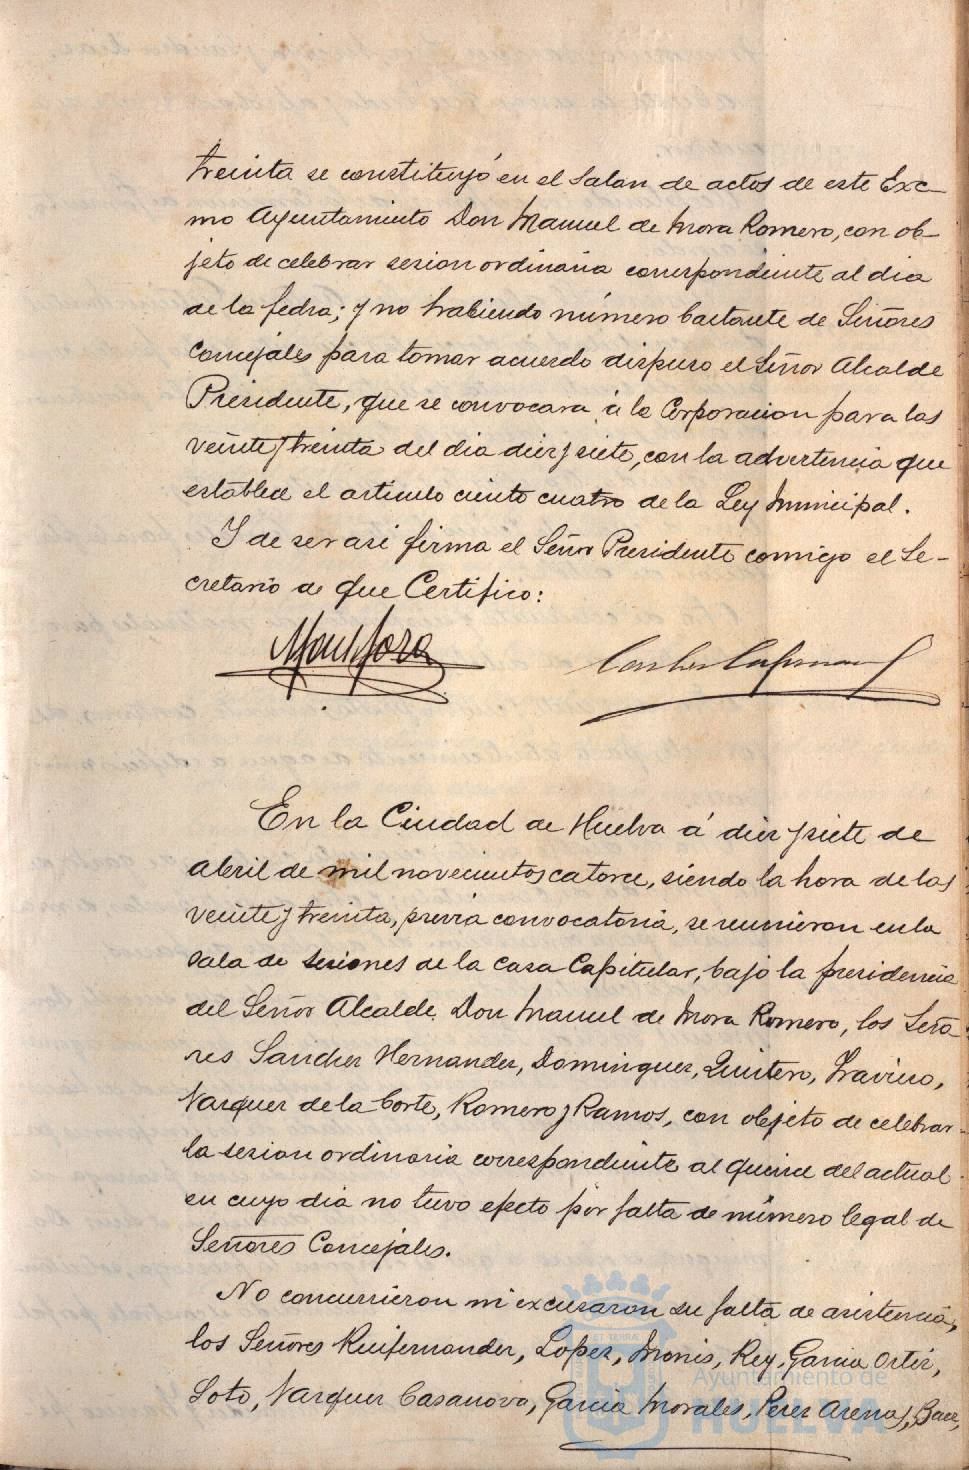 treinta se constituyó en el Salon de actos de este Exc-
mo Ayuntamiento Don Manuel de Mora Romero, con ob-
jeto de celebrar sesion ordinaria correspondiente al dia
de la fecha; y no habiendo número bastante de Señores
Concejales para tomar acuerdo dispuso el Señor Alcalde
Presidente, que se convocara á la Corporacion para las
veinte y treinta del dia diez y siete, con la advertencia que
establece el artículo ciento cuatro de la Ley Municipal.
Y de ser asi firma el Señor Presidente comigo el Se-
cretario de que Certifico:
En la Ciudad de Huelva á diez y siete de
Abril de mil novecientos catorce, siendo la hora de las
veinte y treinta, previa convocatoria, se reunieron en la
Sala de Sesiones de la casa Capitular, bajo la presidencia
del Señor Alcalde Don Manuel de Mora Romero, los Seño-
res Sanchez Hernandez, Dominguez, Quintero, Travieso,
Vazquez de la Corte, Romero y Ramos, con objeto de celebrar
la sesion ordinaria correspondiente al quince del actual
en cuyo dia no tuvo efecto por falta de número legal de
Señores Concejales.
No concurrieron ni excusaron su falta de asistencia,
los Señores Ruifernandez, Lopez, Monis, Rey, Garcia Ortiz,
Soto, Vazquez Casanova, Garcia Morales, Perez Arenas,
ET TERRÆ
Ayuntamiento de
HUELVA